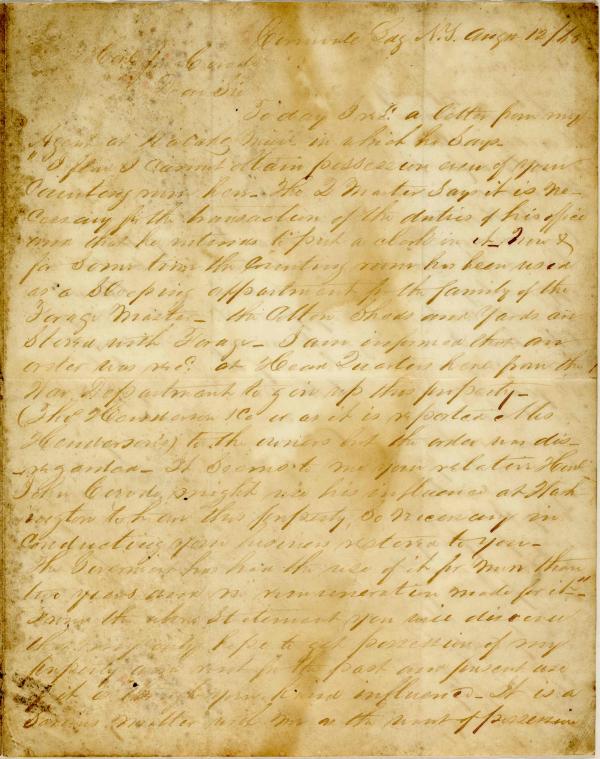 N.Y. Augt 12/65
Dear Sir
Today I recd. a letter from my
Agent at Natchez Missi in which he Says
"I fear I cannot obtain possession even of your
Counting room here - The Q Master Says it is ne-
cessary for the transaction of the duties of his office
and that he intends to put a clerk in it - Now &
for Some time the Counting room has been used
as a Sleeping appartment for the family of the
Forage Master - the Cotton Sheds and Yards are
Stored with Forage - I am informed that an
order was recd. at Head Quarters here from the
War Department to give up this property -
(Thos Henderson & Co or as it is reported Mrs
Henderson's) to the owners but the order was dis-
-regarded - It Seems to me your relation
John might use his influence at Wash
ington to have this property, so necessary in
conducting your business restored to you -
the Government has had the use of it for more than
two years and no remuneration made for it" -
From the above Statement you will discover
that my only hope to get possession of my
property and rent for the past and present use
of it is through your kind influence - It is a
Serious matter with me as the want of possession